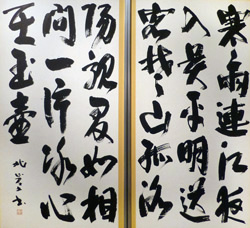 寒雨連江夜
入吳平明送
客楚山孤洛
陽親友如相
問一片冰心
在玉壺